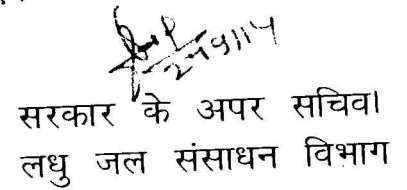 24/9/14
सरकार के अपर सचिव।
लधु जल संसाधन विभाग